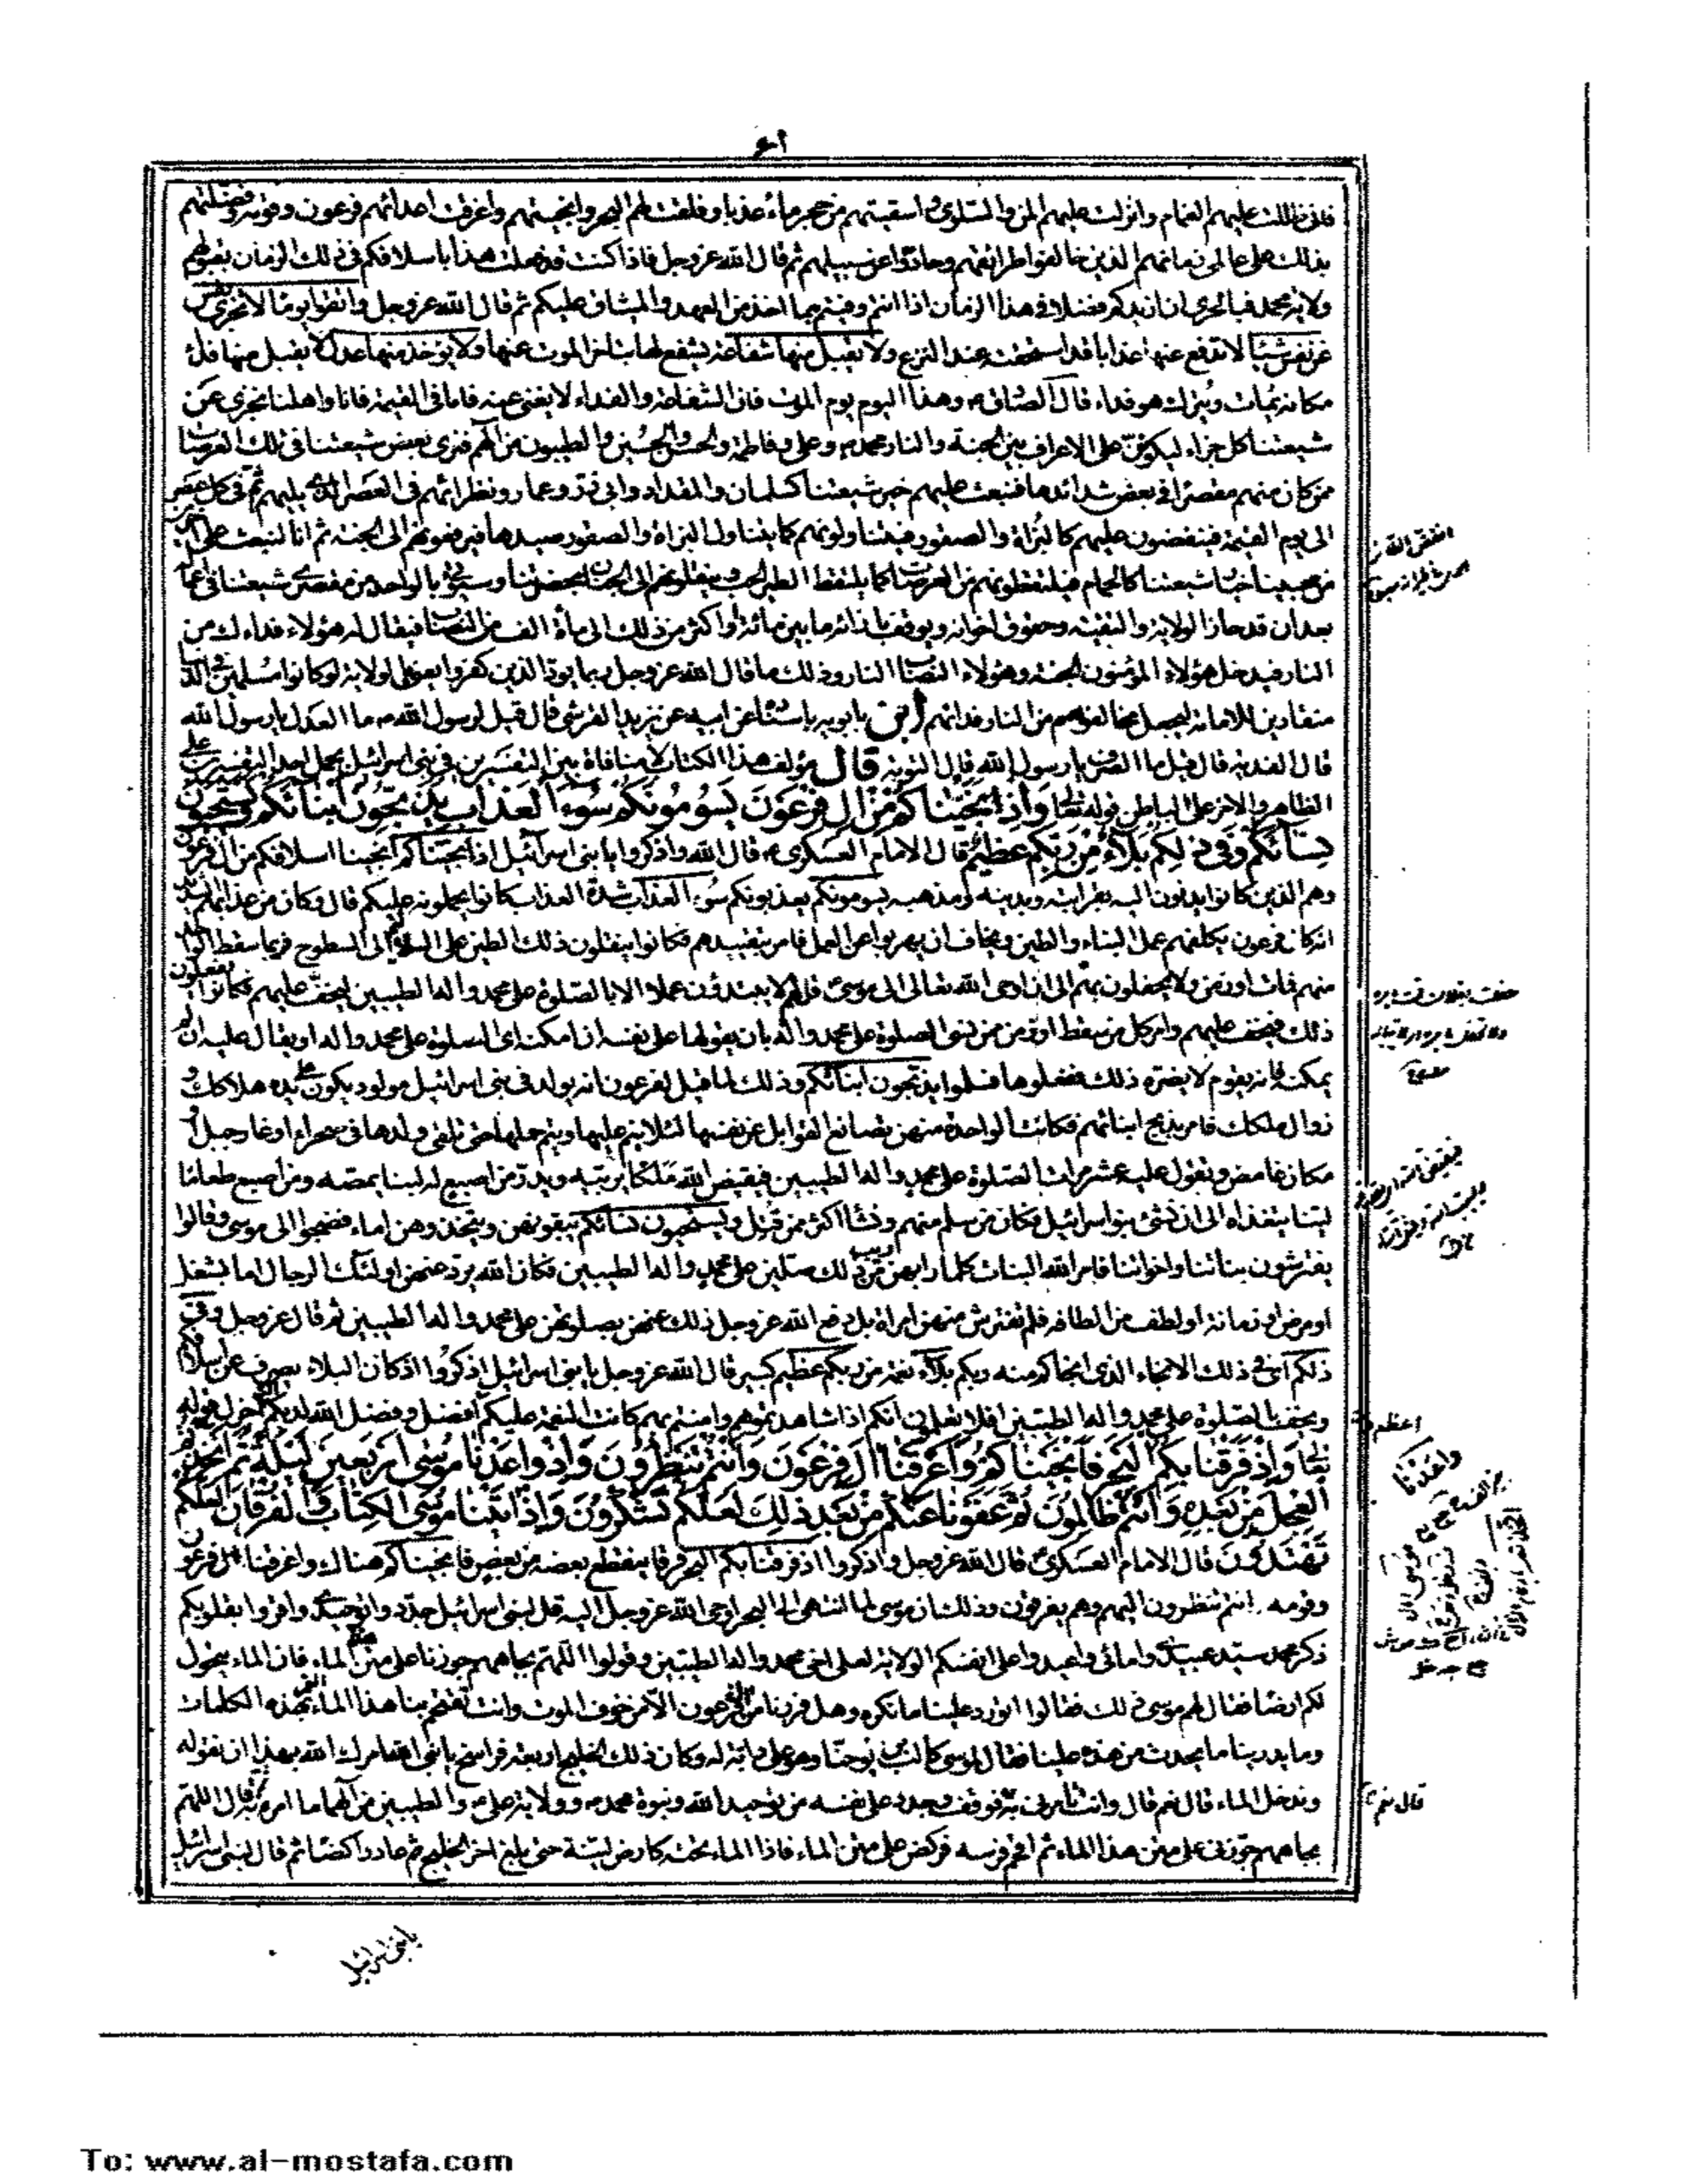 فانى ظللت عليهم الغمام وانزلت عليهم المن والسلوى واسقيتهم من حجر ماء عذبا وفلقت لهم البحر وانجيتهم واغرقت اعدائهم فرعون وقومه وفضلتهم
بذلك على عالمى زمانهم الذين خالفوا طرائقهم وحادوا عن سبيلهم ثم قال الله عز وجل فاذا كنت قد فعلت هذا باسلافكم فى ذلك الزمان بقبولهم
ولاية محمد فبالحرى ان ازيدكم فضلا فى هذا الزمان اذا انتم وفيتم بما اخذ من العهد والميثاق عليكم ثم قال الله عز وجل واتقوا يوما لا تجزى نفس
عن نفس شيئا لا تدفع عنها عذابا قد استحقته عند النزع ولا يقبل منها شفاعة يشفع لها بتأخر الموت عنها ولا يؤخذ منها عدل لا يقبل منها فداء
مكانه يمات ويترك هو فداء قال الصادق وهذا اليوم يوم الموت فان الشفاعة والفداء لا يغنى عنه فاما فى القيمة فانا واهلنا نجزى عن
شيعتنا كل جزاء ليكونن على الاعراف بين الجنة والنار محمد وعلى وفاطمة والحسن والحسين والطيبون من آلهم فنرى بعض شيعتنا فى تلك العرصات
ممن كان منهم مقصرا فى بعض شدائدها فنبعث عليهم خير شيعتنا كسلمان والمقداد وابى ذر وعمار ونظرائهم فى العصر الذى يليهم ثم فى كل عصر
الى يوم القيمة فينقضون عليهم كالبزاة والصقور فيتناولونهم كما يتناول البزاة والصقور صيدها فيزفونهم الى الجنة ثم انا لنبعث على آخرين
من محبينا خيار شيعتنا كالحمام فيلتقطونهم من العرصات كما يلتقط الطير الحب وينقلونهم الى الجنان بحضرتنا وسيؤتى بالواحد من مقصرى شيعتنا فى اعماله
بعد ان قد حاز الولاية والتقية وحقوق اخوانه ويوقف بازائه ما بين مائة او اكثر من ذلك الى مأة الف من النصاب فيقال له هؤلاء فداءك من
النار فيدخل هؤلاء المؤمنون الجنة وهؤلاء النصاب النار وذلك ما قال الله عز وجل ربما يود الذين كفروا يعنى بالولاية لو كانوا مسلمين فى الدنيا
منقادين للامامة ليجعل مخالفوهم من النار فدائهم ابن بابويه باسناده عن ابيه عن يزيد القرشى قال قيل لرسول الله ما العدل يا رسول الله
قال الفدية قال قيل ما الصرف يا رسول الله قال التوبة قال مؤلف هذا الكتاب لا منافاة بين التفسيرين فى بنى اسرائيل بحمل احد التفسيرين على
الظاهر والاخر على الباطن قوله تعالى وَاِذْ نَجَّيْنَاكُمْ مِنْ آلِ فِرْعَوْنَ يَسُومُونَكُمْ سُوءَ الْعَذَابِ يُذَبِّحُونَ اَبْنَائَكُمْ وَيَسْتَحْيُونَ
نِسَائَكُمْ وَفِى ذٰلِكُمْ بَلَاءٌ مِنْ رَبِّكُمْ عَظِيمٌ قال الامام العسكرى قال الله واذكروا يا بنى اسرآئيل اذ انجيناكم انجينا اسلافكم من آل فرعون
وهم الذين كانوا يدنون اليه بقرابته وبدينه ومذهبه يسومونكم يعذبونكم سوء العذاب شدة العذاب كانوا يحملونه عليكم قال وكان من عذابهم الشديد
انه كان فرعون يكلفهم عمل البناء والطين ويخاف ان يهربوا عن العمل فامر بتقييدهم فكانوا ينقلون ذلك الطين على السلاليم الى السطوح فربما سقط الواحد
منهم فمات او زمن ولا يحفلون بهم الى ان اوحى الله تعالى الى موسى قل لهم لا يبتدؤن عملا الا بالصلوة على محمد واله الطيبين ليخف عليهم فكانوا يفعلون
ذلك فيخف عليهم وامر كل من سقط او زمن ممن نسى الصلوة على محمد واله بان يقولها على نفسه ان امكنه اى الصلوة على محمد واله او يقال عليه ان لم
يمكنه فانه يقوم لا يضره ذلك ففعلوها فسلموا يذبحون ابنائكم وذلك لما قيل لفرعون انه يولد فى بنى اسرائيل مولود يكون على يده هلاكك و
زوال ملكك فامر بذبح ابنائهم فكانت الواحدة منهن تصانع القوابل عن نفسها لئلا ينم عليها ويتم حملها حتى تلقى ولدها فى صحراء او غار جبل او
مكان غامض وتقول عليه عشر مرات الصلوة على محمد واله الطيبين فيقيض الله ملكا يربيه ويدر من اصبع له لبنا يمصه ومن اصبع طعاما
لينا يتغذاه الى ان نشئ بنو اسرائيل وكان من سلم منهم ونشأ اكثر ممن قتل ويستحيون نسائكم يبقونهن ويتخذونهن اماء فضجوا الى موسى وقالوا
يفترشون بناتنا واخواتنا فامر الله البنات كلما رابهن ريب من ذلك صلين على محمد واله الطيبين فكان الله يرد عنهن اولئك الرجال اما بشغل
او مرض او زمانة او لطف من الطافه فلم تفترش منهن امراة بل دفع الله عز وجل ذلك عنهن بصلوتهن على محمد واله الطيبين ثم قال عز وجل وفى
ذلكم اى فى ذلك الانجاء الذى انجاكم منه ربكم بلاء نعمة من ربكم عظيم كبير قال الله عز وجل يا بنى اسرائيل اذكروا اذ كان البلاء يصرف عن اسلافكم
ويخف بالصلوة على محمد واله الطيبين افلا تعلمون انكم اذا شاهدتموهم وامنتم بهم كانت النعمة عليكم افضل وفضل الله لديكم اجزل قوله
تعالى وَاِذْ فَرَقْنَا بِكُمُ الْبَحْرَ فَاَنْجَيْنَاكُمْ وَاَغْرَقْنَا آلَ فِرْعَوْنَ وَاَنْتُمْ تَنْظُرُونَ وَاِذْ وَاعَدْنَا مُوسٰى اَرْبَعِينَ لَيْلَةً ثُمَّ اتَّخَذْتُمُ
الْعِجْلَ مِنْ بَعْدِهِ وَاَنْتُمْ ظَالِمُونَ ثُمَّ عَفَوْنَا عَنْكُمْ مِنْ بَعْدِ ذٰلِكَ لَعَلَّكُمْ تَشْكُرُونَ وَاِذْ آتَيْنَا مُوسَى الْكِتَابَ وَالْفُرْقَانَ لَعَلَّكُمْ
تَهْتَدُونَ قال الامام العسكرى قال الله عز وجل واذكروا اذ فرقنا بكم البحر فرقا ينقطع بعضه من بعض فانجيناكم هناك واغرقنا آل فرعون
وقومه وانتم تنظرون اليهم وهم يغرقون وذلك ان موسى لما انتهى الى البحر اوحى الله عز وجل اليه قل لبنى اسرائيل جددوا توحيدى واقروا بقلوبكم
ذكر محمد سيد عبيدى وامائى واعيدوا على انفسكم الولاية لعلى اخى محمد واله الطيبين وقولوا اللهم بجاههم جوزنا على متن هذا الماء فان الماء يتحول
لكم ارضا فقال لهم موسى ذلك فقالوا اتورد علينا ما نكره وهل فررنا من آل فرعون الا من خوف الموت وانت تقتحم بنا هذا الماء الغمر بهذه الكلمات
وما يدرينا ما يحدث من هذه علينا فقال لموسى كالب بن يوحنا وهو على دابة له وكان ذلك الخليج اربعة فراسخ يا نبى الله امرك الله بهذا ان نقوله
وندخل الماء قال نعم قال وانت تأمرنى به فوقف وجدد على نفسه من توحيد الله ونبوة محمد وولاية على والطيبين من آلهما ما امره به ثم قال اللهم
بجاههم جوزنى على متن هذا الماء ثم اقحم فرسه فركض على متن الماء فاذا الماء تحته كارض لينة حتى بلغ اخر الخليج ثم عاد راكضا ثم قال لبنى اسرائيل
اعظم
واعدنا
قال نعم
يا بنى اسرائيل
To: www.al-mostafa.com